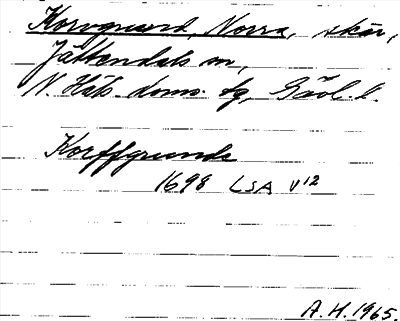 Korvgrund, Norra, skär,
Jättendals sn,
N. Häls. doms. tg, Gävl. l.
Korffgrunds
1698 LSA V12
A.H. 1965.